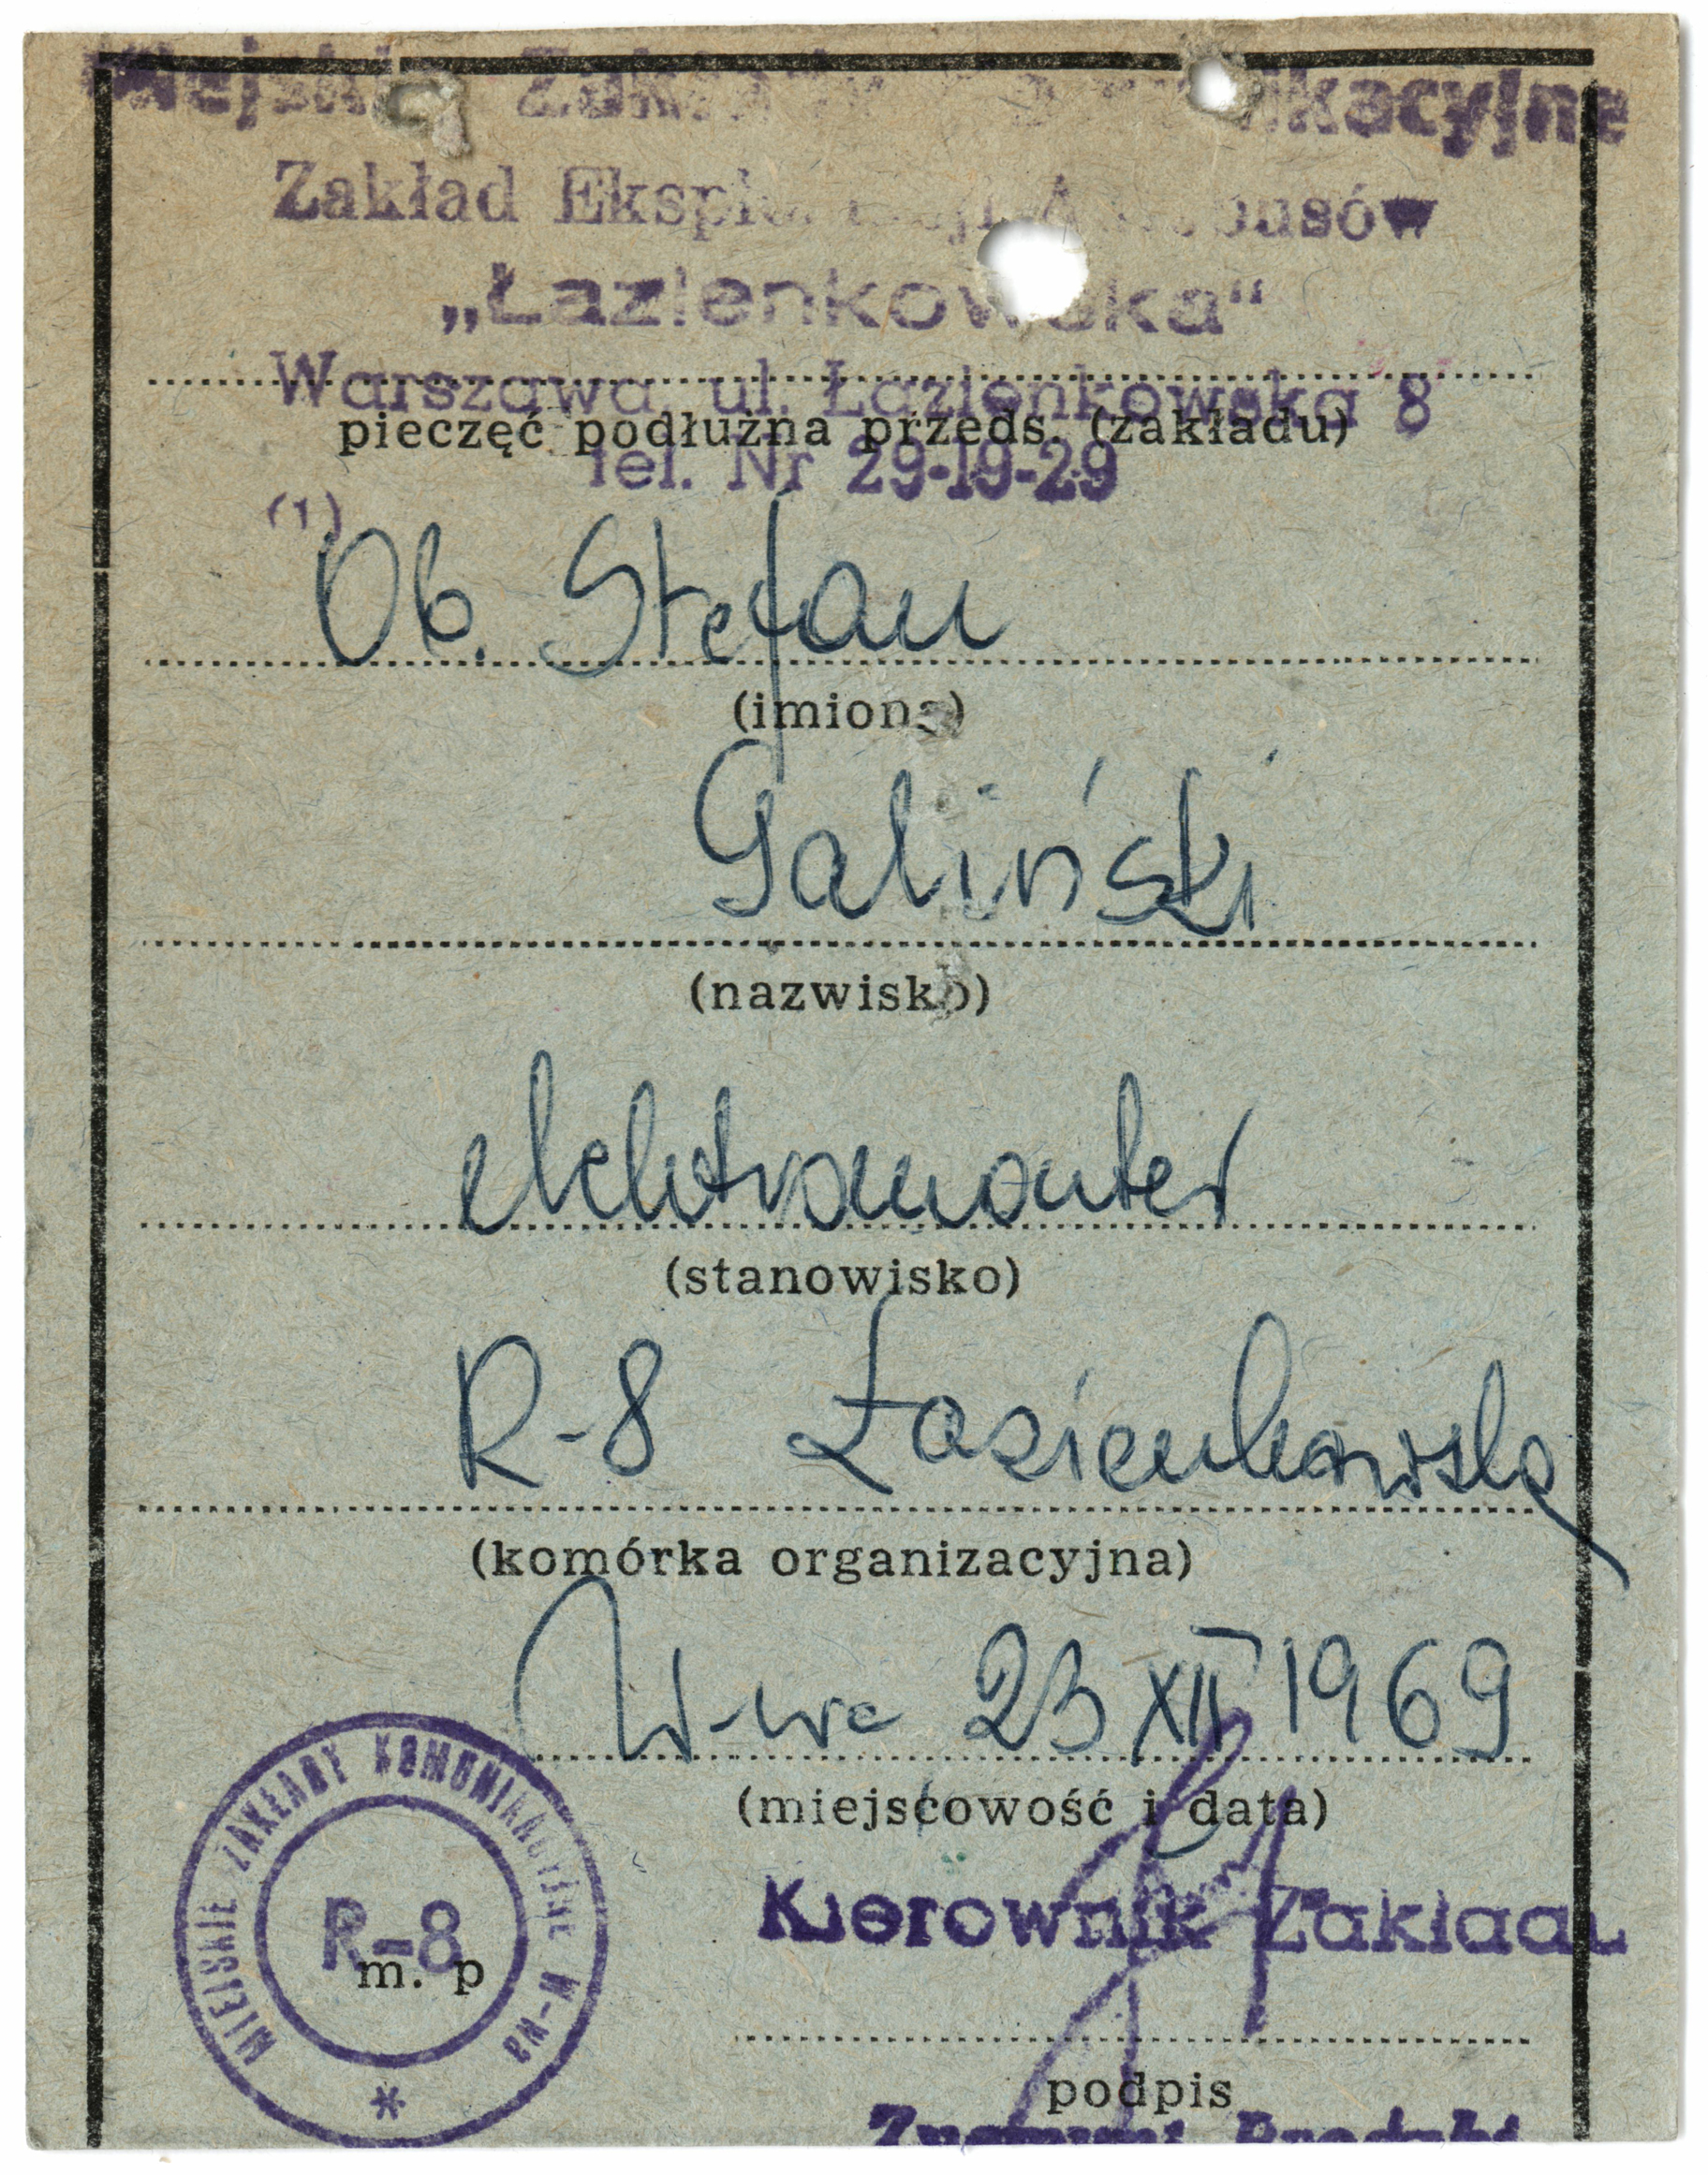 Miejskie Zakłady Komunikacyjne
Zakład Eksploatacji Autobusów
„Łazienkowska“
Warszawa, ul. Łazienkowska 8
pieczęć podłużna przeds. (zakładu)
Tel. Nr 29-19-29
(1)
Ob. Stefan
(imiona)
Galiński
(nazwisko)
elektromonter
(stanowisko)
R-8 Łazienkowska
(komórka organizacyjna)
W-wa 23 XII 1969
(miejscowość i data)
MIEJSKIE ZAKŁADY KOMUNIKACYJNE W-WA
R-8
m. p
Kierownik Zakładu
podpis
Zygmunt